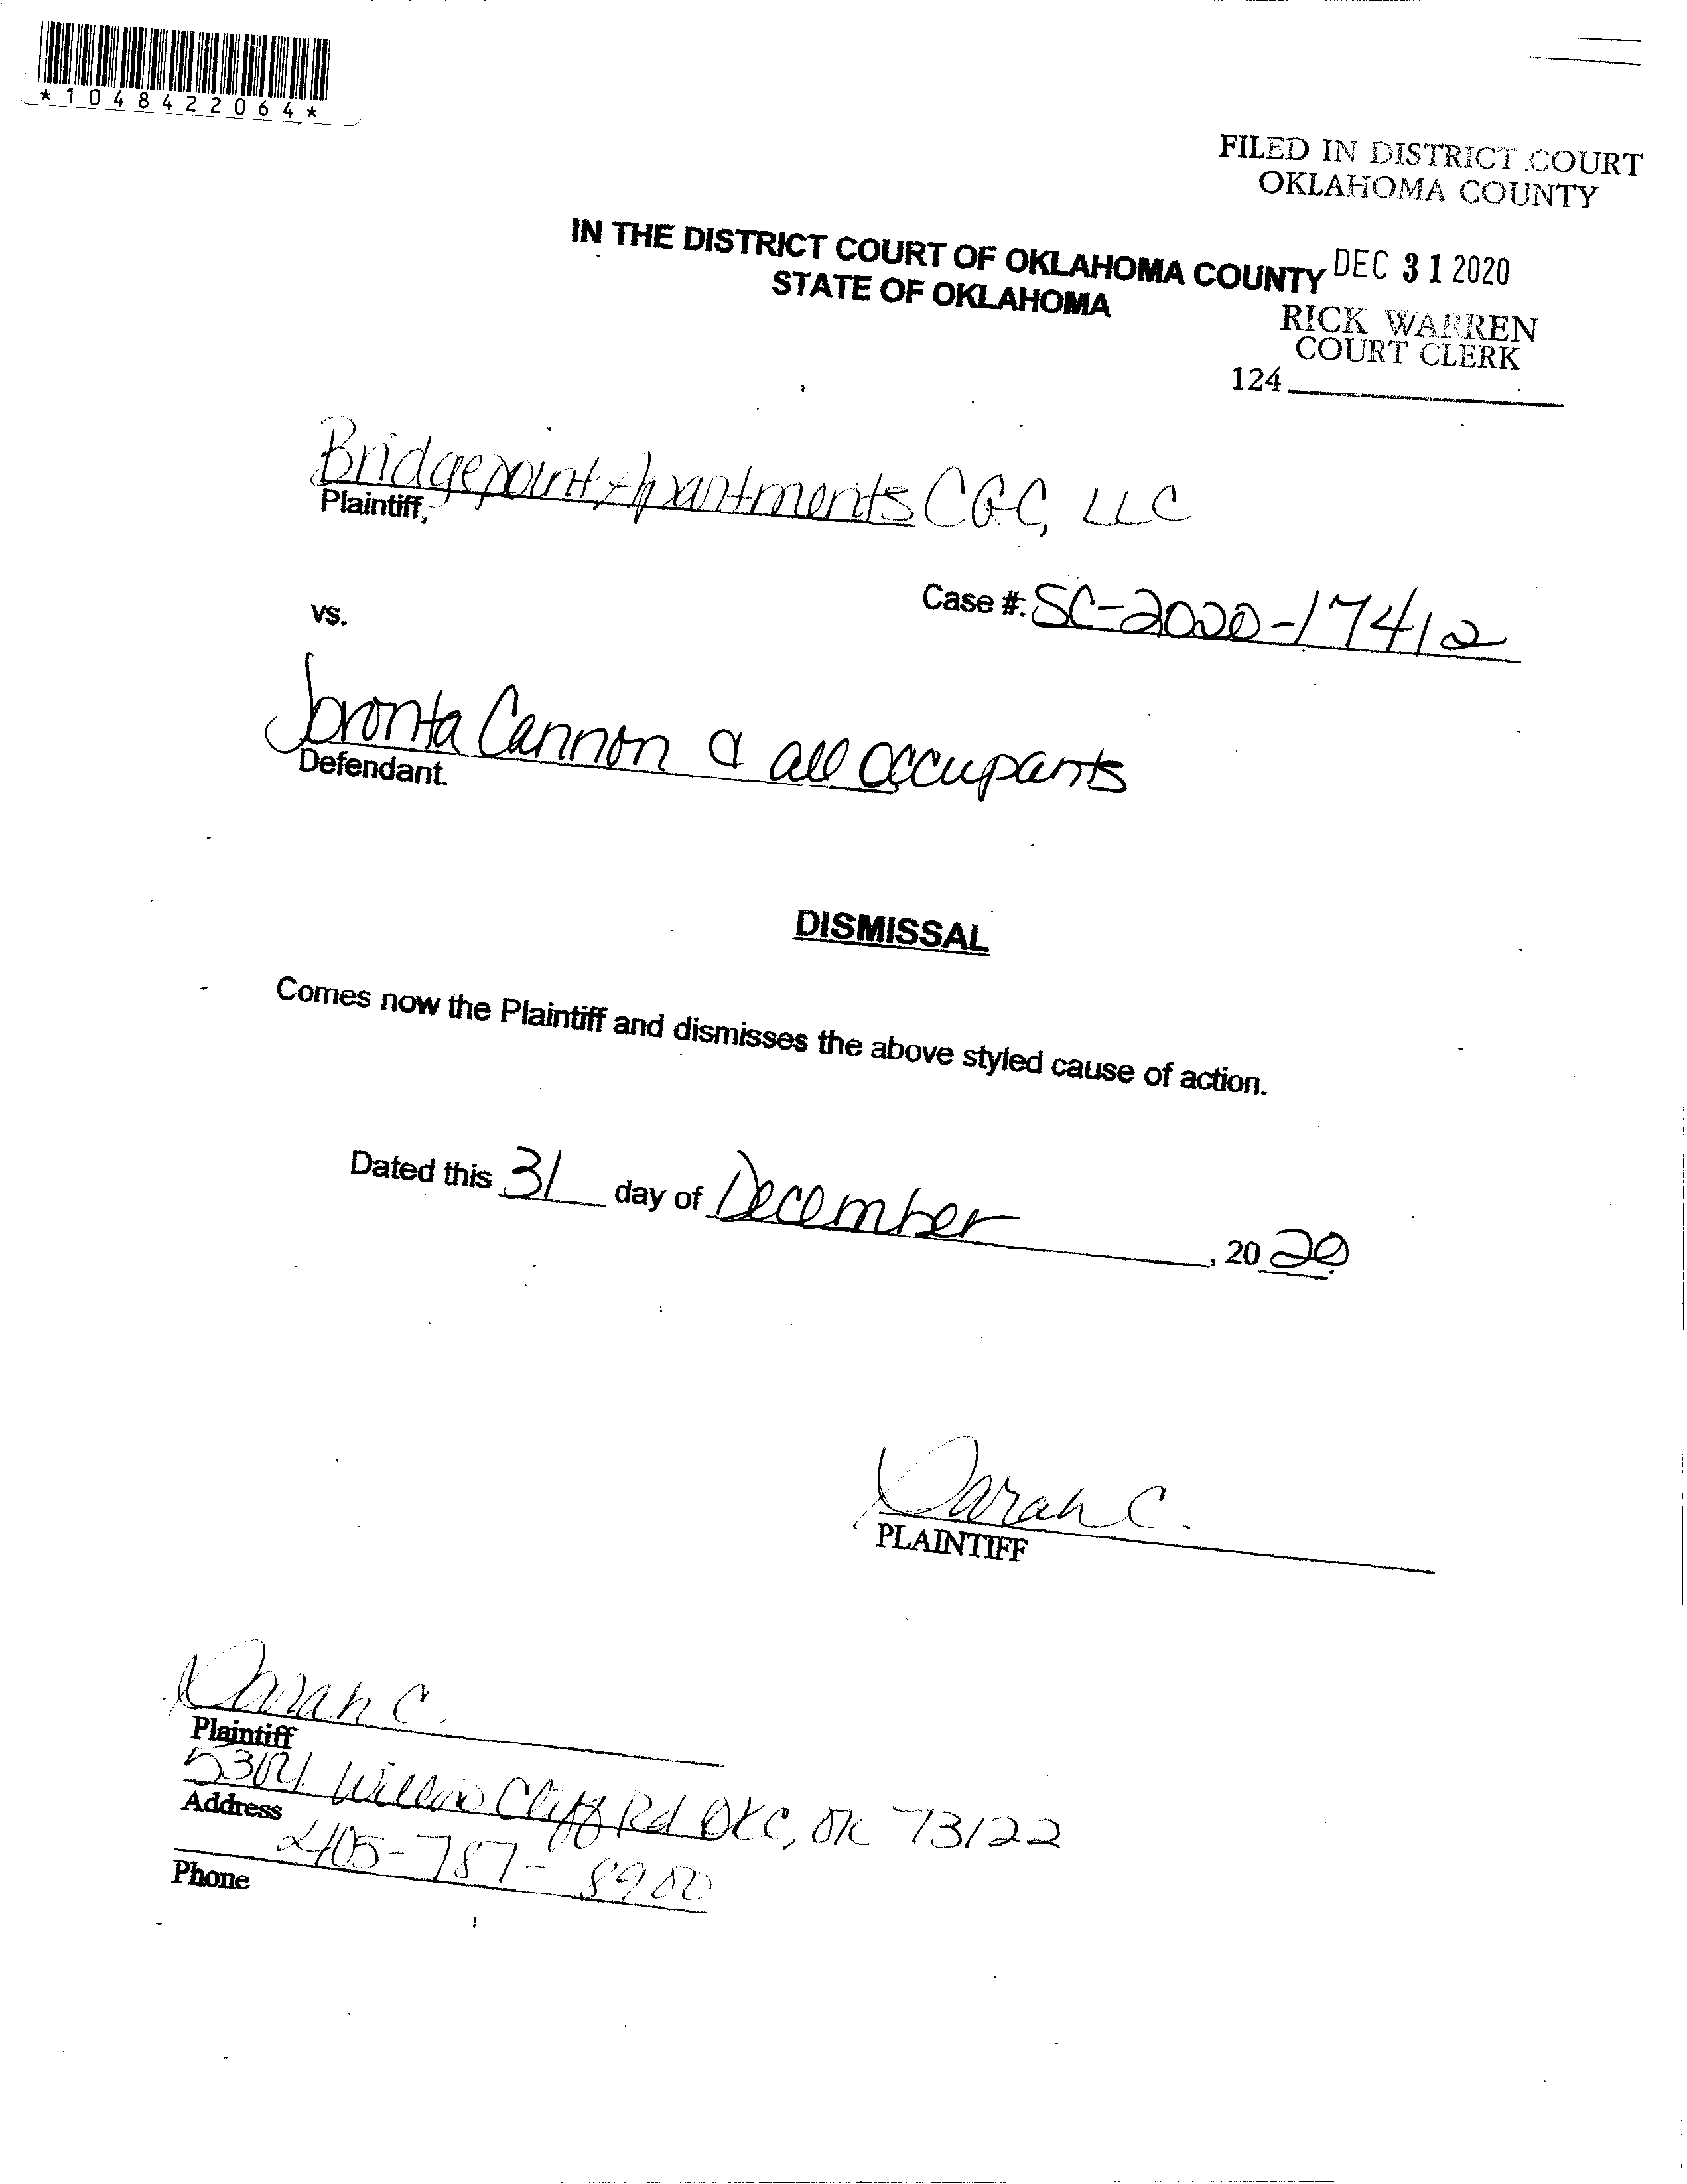 *1048422064*
FILED IN DISTRICT COURT
OKLAHOMA COUNTY
IN THE DISTRICT COURT OF OKLAHOMA COUNTY
STATE OF OKLAHOMA
DEC 31 2020
RICK WARREN
COURT CLERK
124
Bridgepoint Apartments CGC, LLC
Plaintiff,
vs.
Case #: SC-2020-17412
Cannon & all occupants
Defendant.
DISMISSAL
Comes now the Plaintiff and dismisses the above styled cause of action.
Dated this 31 day of December, 2020
Sarah C.
PLAINTIFF
Sarah C.
Plaintiff
Willow Cliff Rd OKC, OK 73122
Address
405-787-8900
Phone